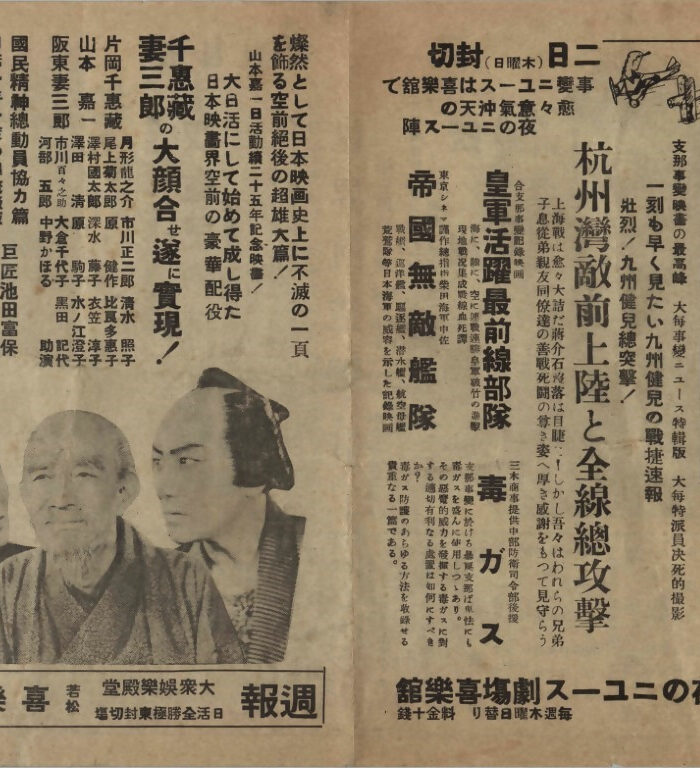 二日(木曜日)封切
事變ニユースは喜樂館で
愈々意氣沖天の
夜のニユース陣
支那事變映畫の最高峰 大毎事變ニュース特輯版 大毎特派員决死的撮影
一刻も早く見たい九州健兒の戰捷速報
壯烈!九州健兒總突擊!
杭州灣敵前上陸と全線總攻擊
上海戰は愈々大詰だ蔣介石沒落は目睫に!しかし吾々はわれらの兄弟
子息從弟親友同僚達の善戰死鬪の尊き姿へ厚き感謝をもつて見守らう
合支那事變記錄映画
皇軍活躍最前線部隊
現地戰況集成戰線血死譚
東京シネマ謹作總指揮柴田海軍中佐
帝國無敵艦隊
戰艦、巡洋艦、驅逐艦、潛水艦、航空母艦
荒鷲隊等日本海軍の威容を示した記錄映画
三木商事提供中部防衞司令部後援
毒ガス
支那事變に於ける暴戾支那は卑怯にも
毒ガスを盛んに使用しつゝあり。
その惡魔的威力を發揮する毒ガスに對
する適切有利なる處置は如何にすべき
か?
毒ガス防護のあらゆる方法を收錄せる
貴重なる一篇である。
夜のニユース劇場喜樂館
毎週木曜日替り 料金十錢
燦然として日本映画史上に不滅の一頁
を飾る空前絕後の超雄大篇!
山本嘉一日活動續二十五年記念映畫!
大日活にして始めて成し得た
日本映畫界空前の豪華配役
千惠藏
妻三郎の大顏合せ遂に實現!
片岡千惠藏
山本 嘉一
阪東妻三郎
月形龍之介 市川正二郎 清水 照子
尾上菊太郎 原 健作 比良多惠子
澤村國太郎 深水 藤子 衣笠 淳子
澤田 清 原 駒子 水ノ江澄子
市川百々之助 大倉千代子 黑田 記代
河部 五郎 中野かほる 助演
國民精神總動員協力篇
巨匠池田富保
週報
大衆娛樂殿堂
日活全勝極東封切塲
若松
喜樂